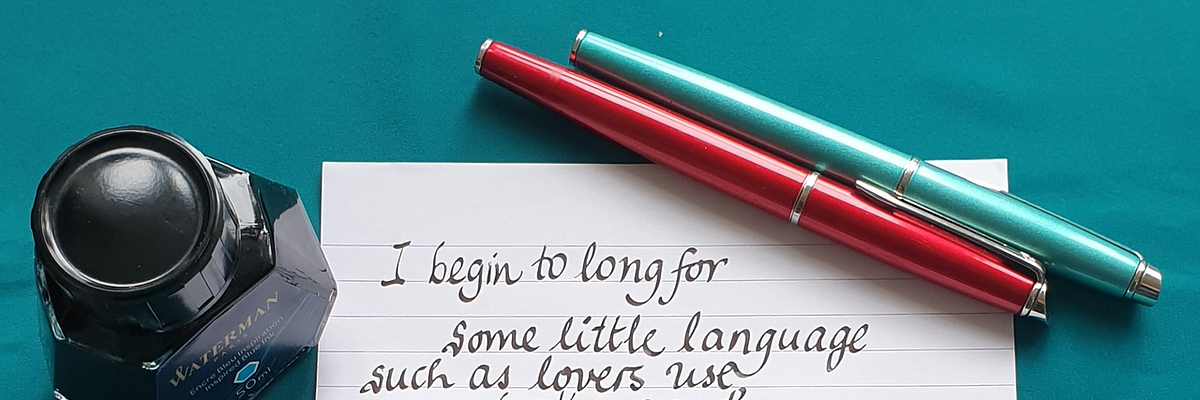 I begin to long for
some little language
such as lovers use
WATERMAN
Encre Bleu Inspiration
Inspired Blue Ink
50 ml